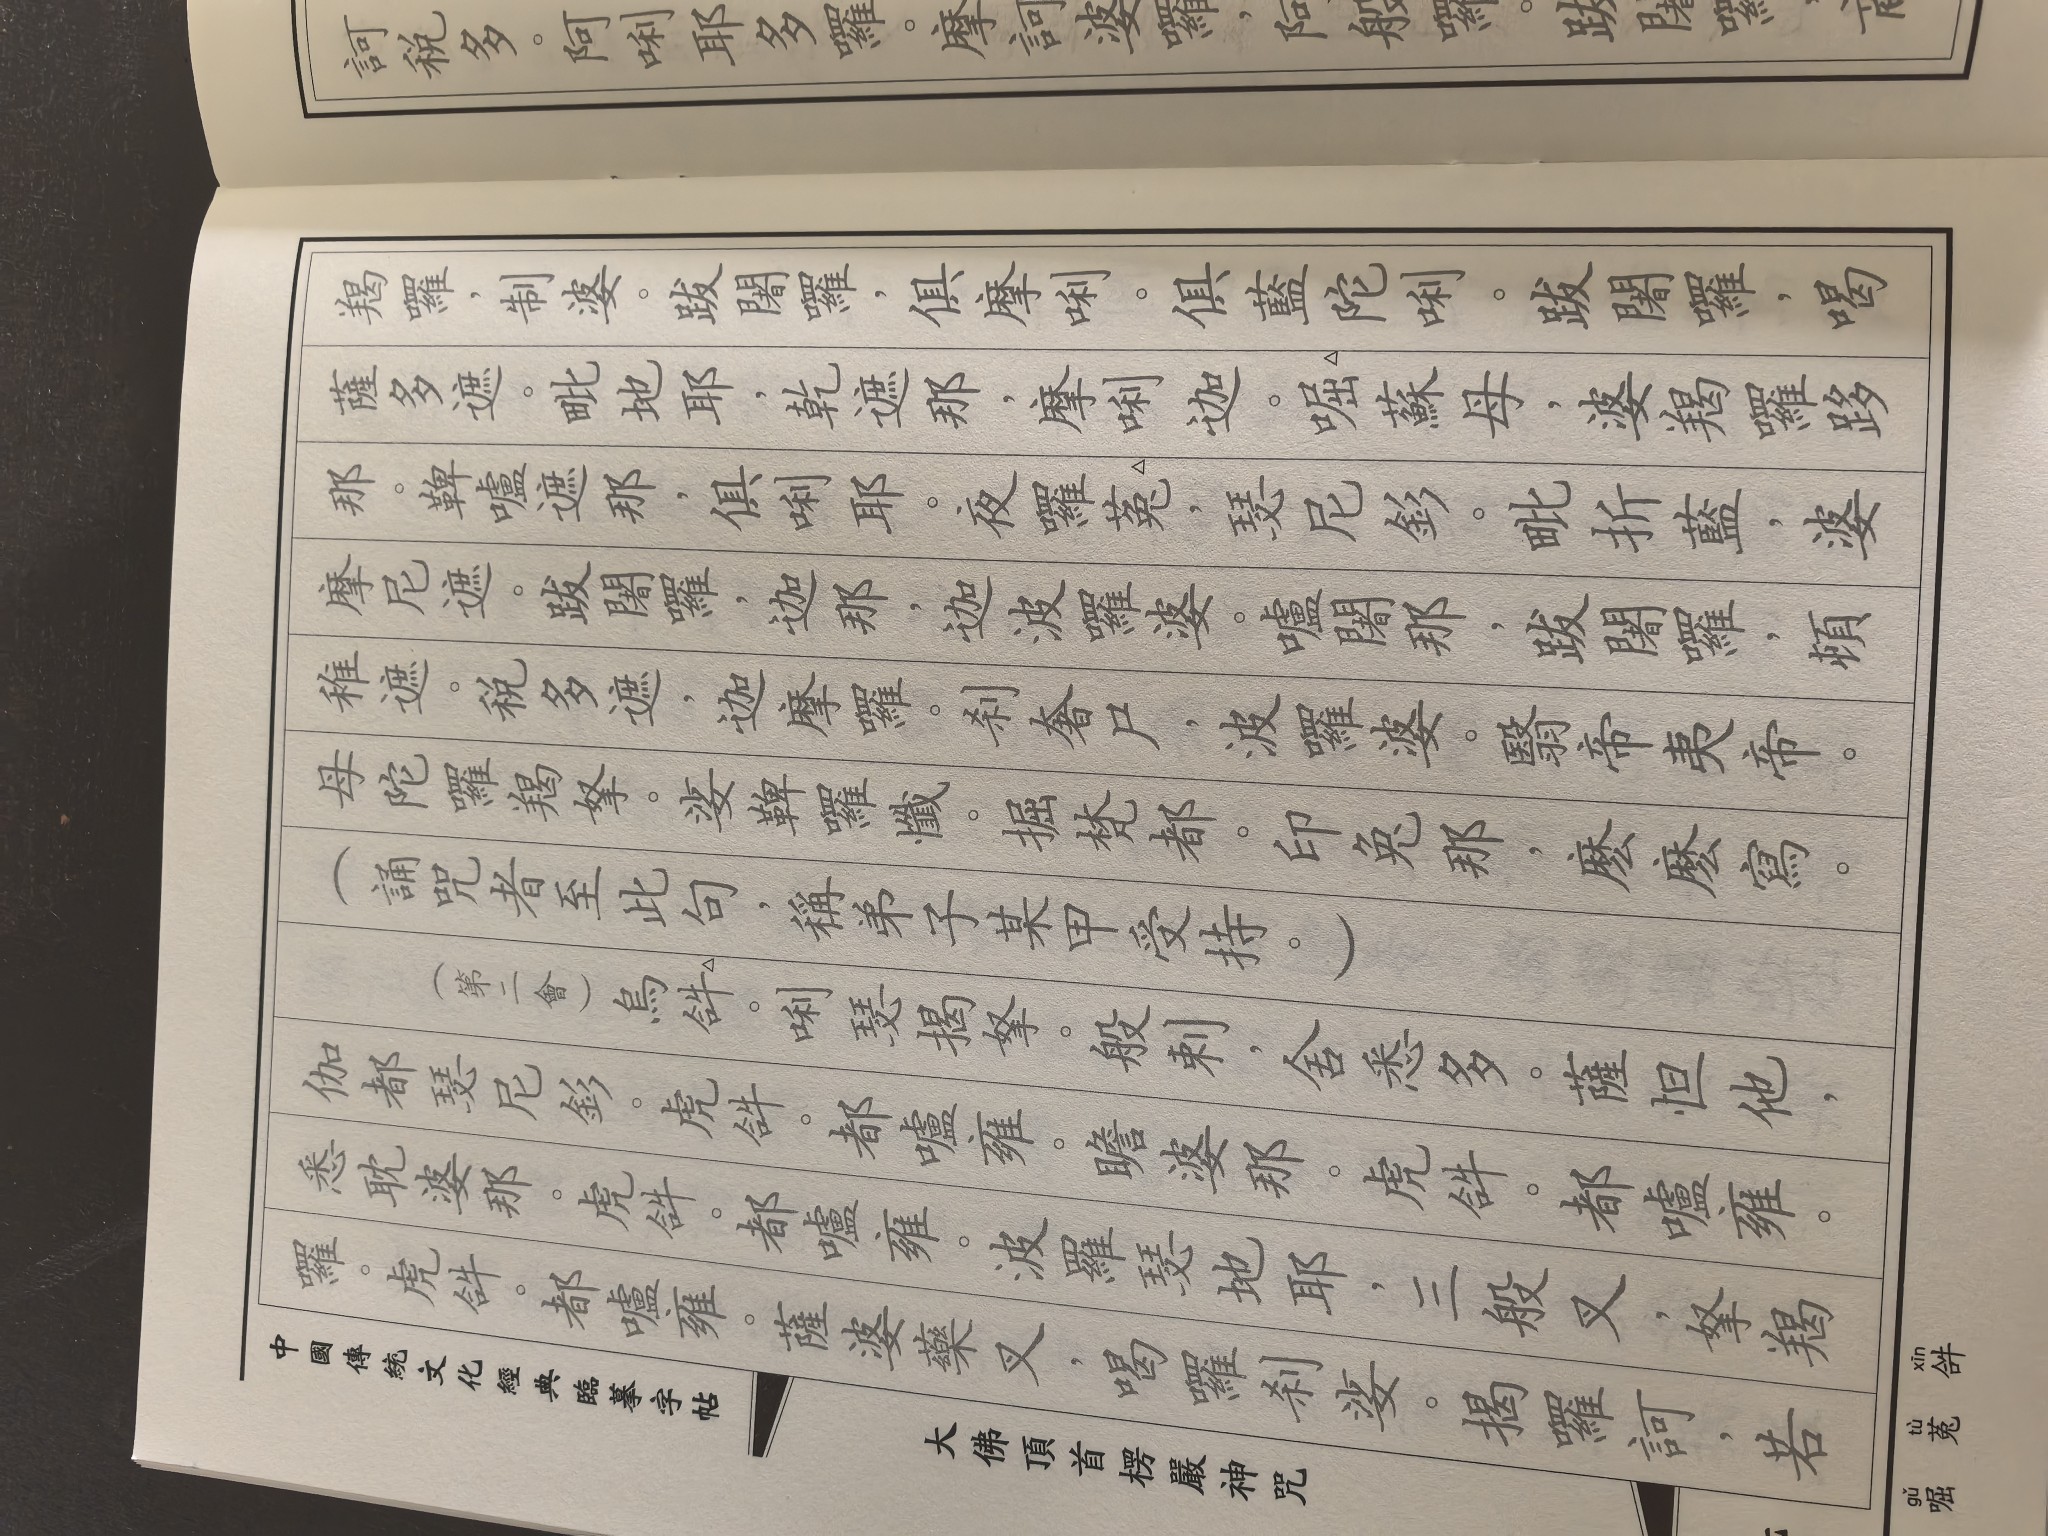 訶税多。阿唎耶多囉。摩訶婆囉，阿般囉。跋闍囉，
羯囉，制婆。跋闍囉，俱摩唎。俱藍陀唎。跋闍囉，喝
薩多遮。毗地耶，乾遮那，摩唎迦。啒△蘇母，婆羯囉跢
那。鞞嚧遮那，俱唎耶。夜囉菟△，瑟尼釤。毗折藍，婆
摩尼遮。跋闍囉，迦那，迦波囉婆。嚧闍那，跋闍囉，頓
稚遮。税多遮，迦摩囉。刹奢尸，波囉婆。翳帝夷帝。
母陀囉羯拏。娑鞞囉懺。掘梵都。印兔那，麽麽寫。
（誦咒者至此句，稱弟子某甲受持。）
（第二會）烏𤙖△。唎瑟揭拏。般剌，舍悉多。薩怛他，
伽都瑟尼釤。虎𤙖。都嚧雍。瞻婆那。虎𤙖。都嚧雍。
悉耽婆那。虎𤙖。都嚧雍。波羅瑟地耶，三般叉，拏羯
囉。虎𤙖。都嚧雍。薩婆藥叉，喝囉刹娑。揭囉訶，若
中國傳統文化經典臨摹字帖
大佛頂首楞嚴神咒
gǔ tù xīn
啒 菟 𤙖